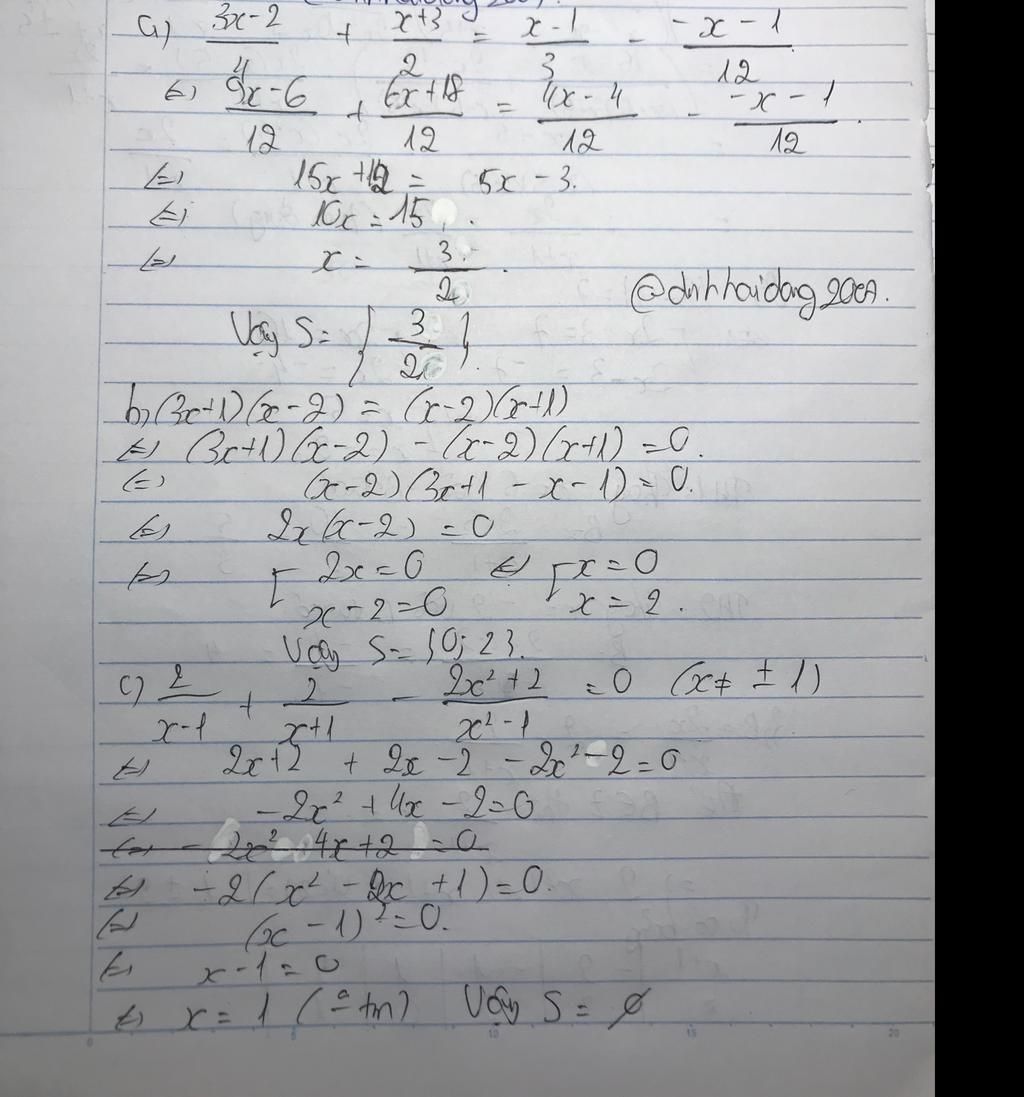 a) \frac{3x-2}{4} + \frac{x+3}{2} = \frac{x-1}{3} - \frac{-x-1}{12}.
<=> \frac{9x-6}{12} + \frac{6x+18}{12} = \frac{4x-4}{12} - \frac{-x-1}{12}.
<=> 15x + 12 = 5x - 3.
<=> 10x = 15.
<=> x = \frac{3}{2}.
@dnhhaidang2001.
Vậy S = { \frac{3}{2} }.
b) (3x+1)(x-2) = (x-2)(x+1)
<=> (3x+1)(x-2) - (x-2)(x+1) = 0.
<=> (x-2)(3x+1 - x - 1) = 0.
<=> 2x(x-2) = 0
<=> [ 2x = 0 <=> [ x = 0
x - 2 = 0 x = 2.
Vậy S = {0; 2}.
c) \frac{2}{x-1} + \frac{2}{x+1} - \frac{2x²+2}{x²-1} = 0 (x ≠ ± 1)
<=> 2x+2 + 2x - 2 - 2x² - 2 = 0
<=> -2x² + 4x - 2 = 0
<=> -2(x² - 2x + 1) = 0.
<=> (x - 1)² = 0.
<=> x - 1 = 0
<=> x = 1 Vậy S = ∅